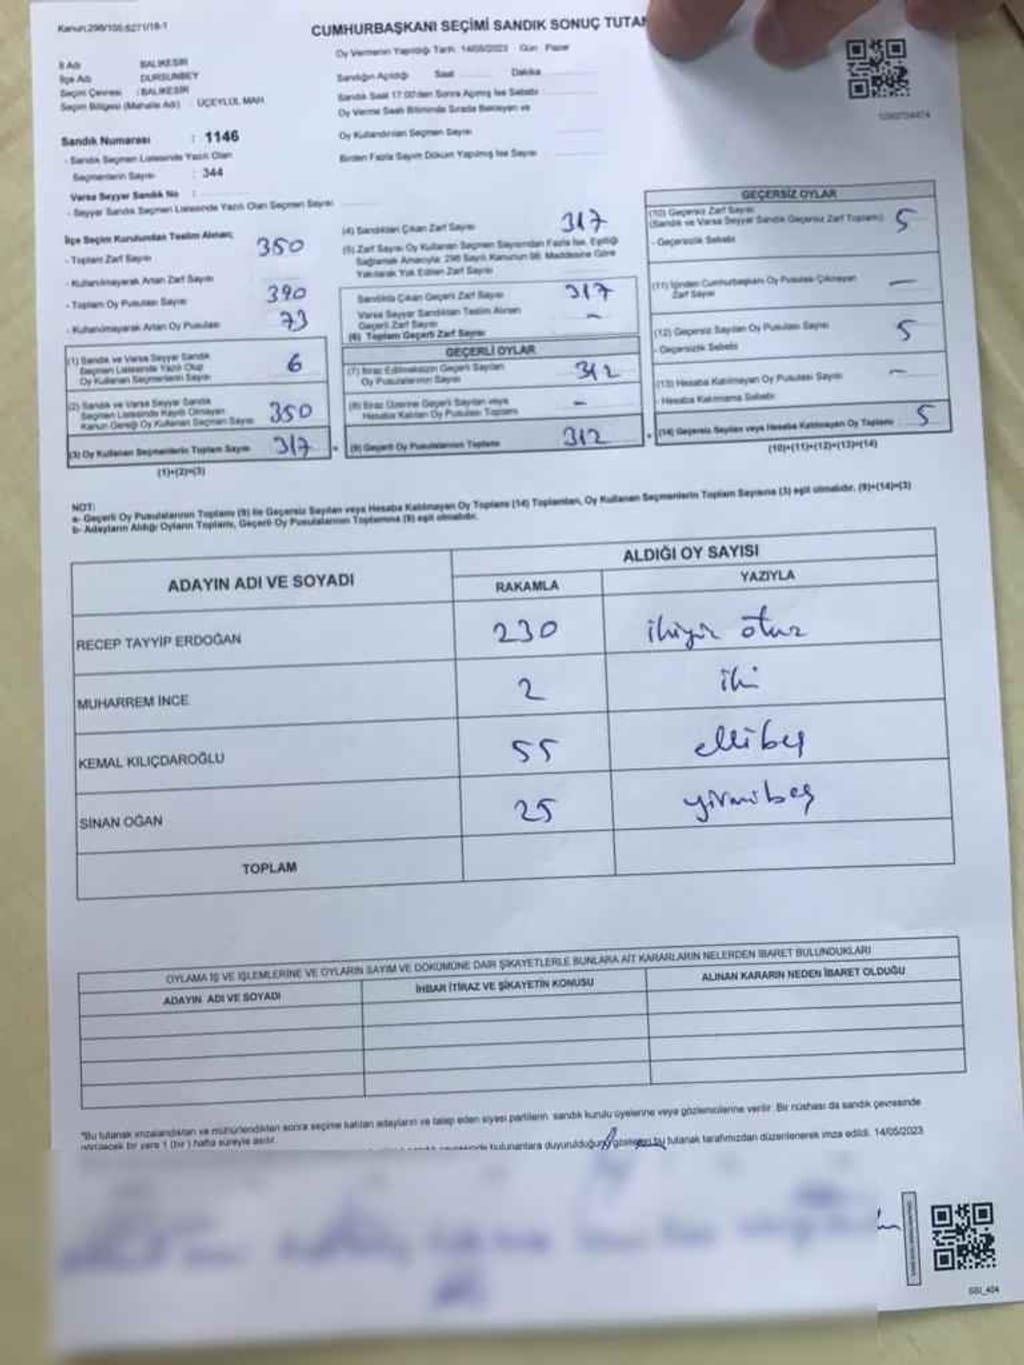 Kanun:298/105-6271/18-1
CUMHURBAŞKANI SEÇİMİ SANDIK SONUÇ TUTAN
Oy Vermenin Yapıldığı Tarih: 14/05/2023 Gün: Pazar
İl Adı : BALIKESİR
İlçe Adı : DURSUNBEY
Seçim Çevresi : BALIKESİR
Seçim Bölgesi (Mahalle Adı) : ÜÇEYLÜL MAH.
Sandığın Açıldığı Saat Dakika
Sandık Saat 17:00'den Sonra Açılmış İse Sebebi
Oy Verme Saati Bitiminde Sırada Bekleyen ve
Oy Kullandırılan Seçmen Sayısı
Birden Fazla Sayım Döküm Yapılmış İse Sayısı
Sandık Numarası : 1146
- Sandık Seçmen Listesinde Yazılı Olan
Seçmenlerin Sayısı : 344
Varsa Seyyar Sandık No :
- Seyyar Sandık Seçmen Listesinde Yazılı Olan Seçmen Sayısı
İlçe Seçim Kurulundan Teslim Alınan;
- Toplam Zarf Sayısı 350
- Kullanılmayarak Artan Zarf Sayısı
- Toplam Oy Pusulası Sayısı 390
- Kullanılmayarak Artan Oy Pusulası 73
(1) Sandık ve Varsa Seyyar Sandık
Seçmen Listesinde Yazılı Olup
Oy Kullanan Seçmenlerin Sayısı 6
(2) Sandık ve Varsa Seyyar Sandık
Seçmen Listesinde Kayıtlı Olmayan
Kanun Gereği Oy Kullanan Seçmen Sayısı 350
(3) Oy Kullanan Seçmenlerin Toplam Sayısı 317
(1)+(2)=(3)
(4) Sandıktan Çıkan Zarf Sayısı 317
(5) Zarf Sayısı Oy Kullanan Seçmen Sayısından Fazla İse, Eşitliği
Sağlamak Amacıyla 298 Sayılı Kanunun 98. Maddesine Göre
Yakılarak Yok Edilen Zarf Sayısı
Sandıkta Çıkan Geçerli Zarf Sayısı 317
Varsa Seyyar Sandıktan Teslim Alınan
Geçerli Zarf Sayısı -
(6) Toplam Geçerli Zarf Sayısı
GEÇERLİ OYLAR
(7) İtiraz Edilmeksizin Geçerli Sayılan
Oy Pusulalarının Sayısı 312
(8) İtiraz Üzerine Geçerli Sayılan veya
Hesaba Katılan Oy Pusulası Toplamı -
(9) Geçerli Oy Pusulalarının Toplamı 312
GEÇERSİZ OYLAR
(10) Geçersiz Zarf Sayısı
(Sandık ve Varsa Seyyar Sandık Geçersiz Zarf Toplamı) 5
- Geçersizlik Sebebi
(11) İçinden Cumhurbaşkanı Oy Pusulası Çıkmayan
Zarf Sayısı -
(12) Geçersiz Sayılan Oy Pusulası Sayısı 5
- Geçersizlik Sebebi
(13) Hesaba Katılmayan Oy Pusulası Sayısı -
- Hesaba Katılmama Sebebi
(14) Geçersiz Sayılan veya Hesaba Katılmayan Oy Toplamı 5
(10)+(11)+(12)+(13)=(14)
NOT:
a- Geçerli Oy Pusulalarının Toplamı (9) ile Geçersiz Sayılan veya Hesaba Katılmayan Oy Toplamı (14) Toplamları, Oy Kullanan Seçmenlerin Toplam Sayısına (3) eşit olmalıdır. (9)+(14)=(3)
b- Adayların Aldığı Oyların Toplamı, Geçerli Oy Pusulalarının Toplamına (9) eşit olmalıdır.
ADAYIN ADI VE SOYADI
ALDIĞI OY SAYISI
RAKAMLA YAZIYLA
RECEP TAYYİP ERDOĞAN 230 ikiyüz otuz
MUHARREM İNCE 2 iki
KEMAL KILIÇDAROĞLU 55 ellibeş
SİNAN OĞAN 25 yirmibeş
TOPLAM
OYLAMA İŞ VE İŞLEMLERİNE VE OYLARIN SAYIM VE DÖKÜMÜNE DAİR ŞİKAYETLERLE BUNLARA AİT KARARLARIN NELERDEN İBARET BULUNDUKLARI
ADAYIN ADI VE SOYADI İHBAR İTİRAZ VE ŞİKAYETİN KONUSU ALINAN KARARIN NEDEN İBARET OLDUĞU
*Bu tutanak imzalandıktan ve mühürlendikten sonra seçime katılan adayların ve talep eden siyasi partilerin sandık kurulu üyelerine veya gözlemcilerine verilir. Bir nüshası da sandık çevresinde
bir yere 1 (bir) hafta süreyle asılır.
bulunanlara duyurulduğunu gösteren bu tutanak tarafımızdan düzenlenerek imza edildi. 14/05/2023